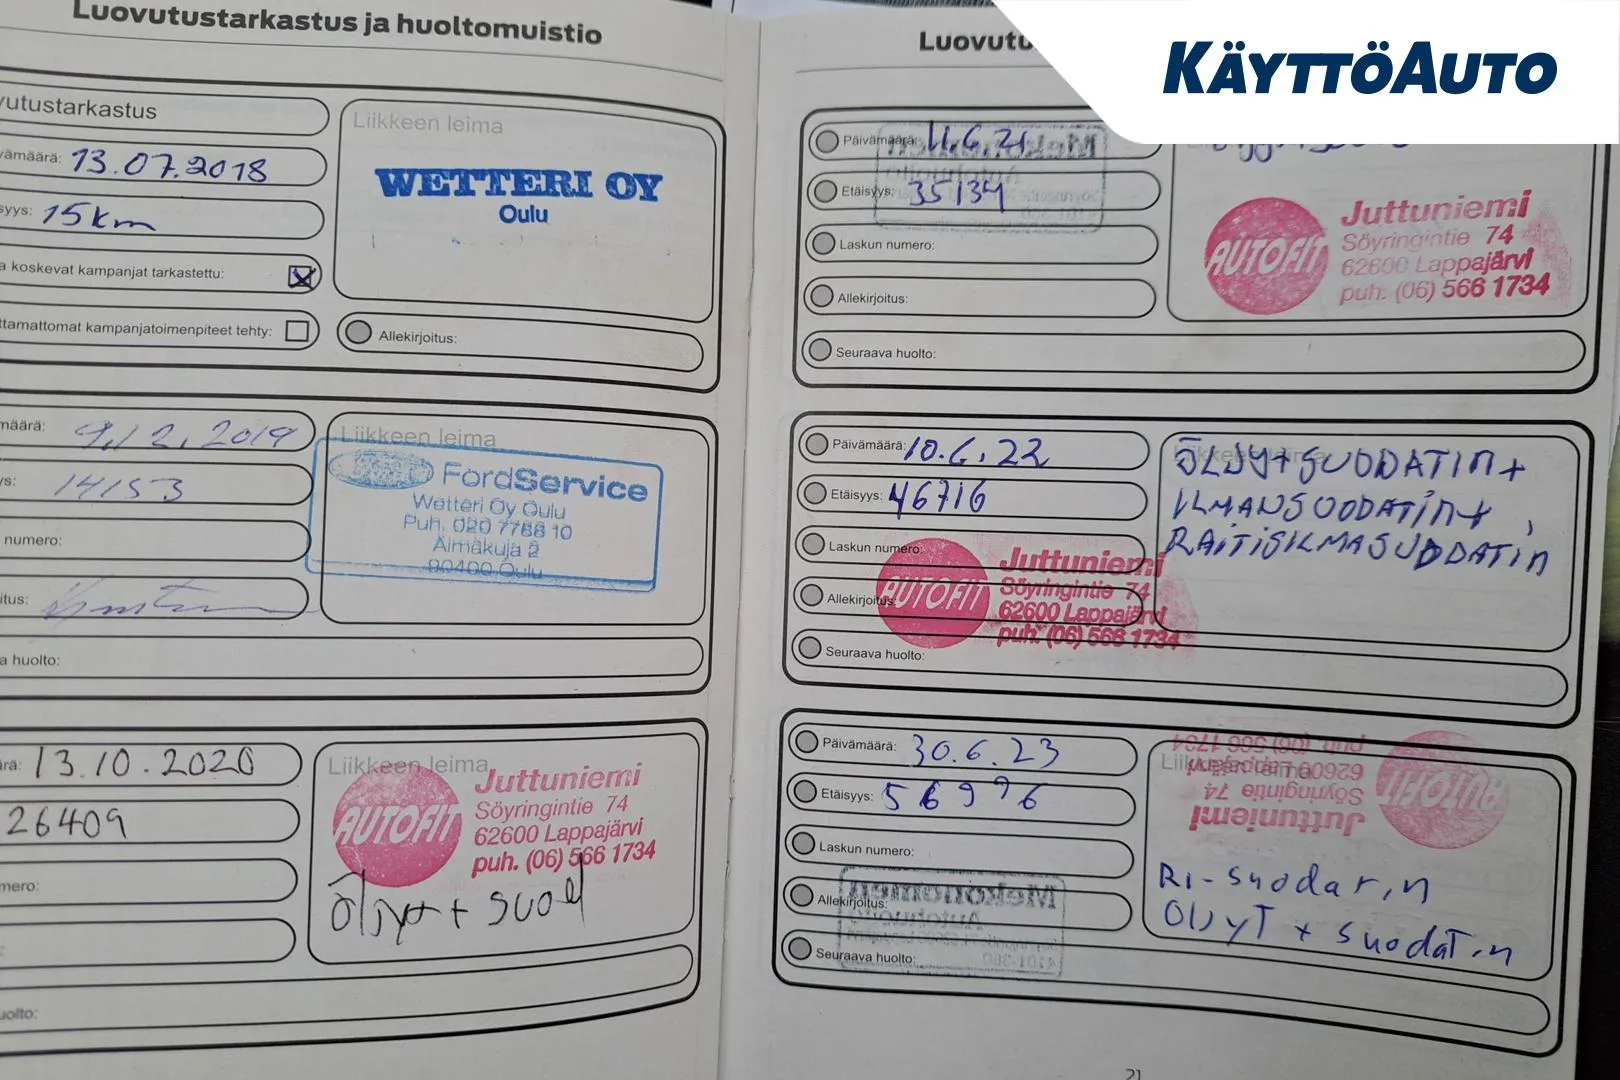 Luovutustarkastus ja huoltomuistio
vutustarkastus
vämäärä: 13.07.2018
syys: 15km
a koskevat kampanjat tarkastettu:
ttamattomat kampanjatoimenpiteet tehty:
Liikkeen leima
WETTERI OY
Oulu
Allekirjoitus:
määrä: 9.12.2019
s: 14153
numero:
itus:
a huolto:
Liikkeen leima
FordService
Wetteri Oy Oulu
Puh. 020 7788 10
Älmäkuja 2
90400 Oulu
ärä: 13.10.2020
26409
mero:
:
uolto:
Liikkeen leima
AUTOFIT
Juttuniemi
Söyringintie 74
62600 Lappajärvi
puh. (06) 566 1734
Öljyt + suod
KÄYTTÖAUTO
Luovutu
Päivämäärä: 11.6.21
Etäisyys: 35134
Laskun numero:
Allekirjoitus:
Seuraava huolto:
AUTOFIT
Juttuniemi
Söyringintie 74
62600 Lappajärvi
puh. (06) 566 1734
Päivämäärä: 10.6.22
Etäisyys: 46716
Laskun numero:
Allekirjoitus:
Seuraava huolto:
ÖLJY+SUODATIN+
ILMANSUODATIN+
RAITISILMASUODATIN
AUTOFIT
Juttuniemi
Söyringintie 74
62600 Lappajärvi
puh. (06) 566 1734
Päivämäärä: 30.6.23
Etäisyys: 56996
Laskun numero:
Allekirjoitus:
Seuraava huolto:
Liikkeen leima
AUTOFIT
Juttuniemi
Söyringintie 74
62600 Lappajärvi
puh. (06) 566 1734
Ri-suodatin
Öljyt + suodatin
Mekonomen
Autohuolto
21